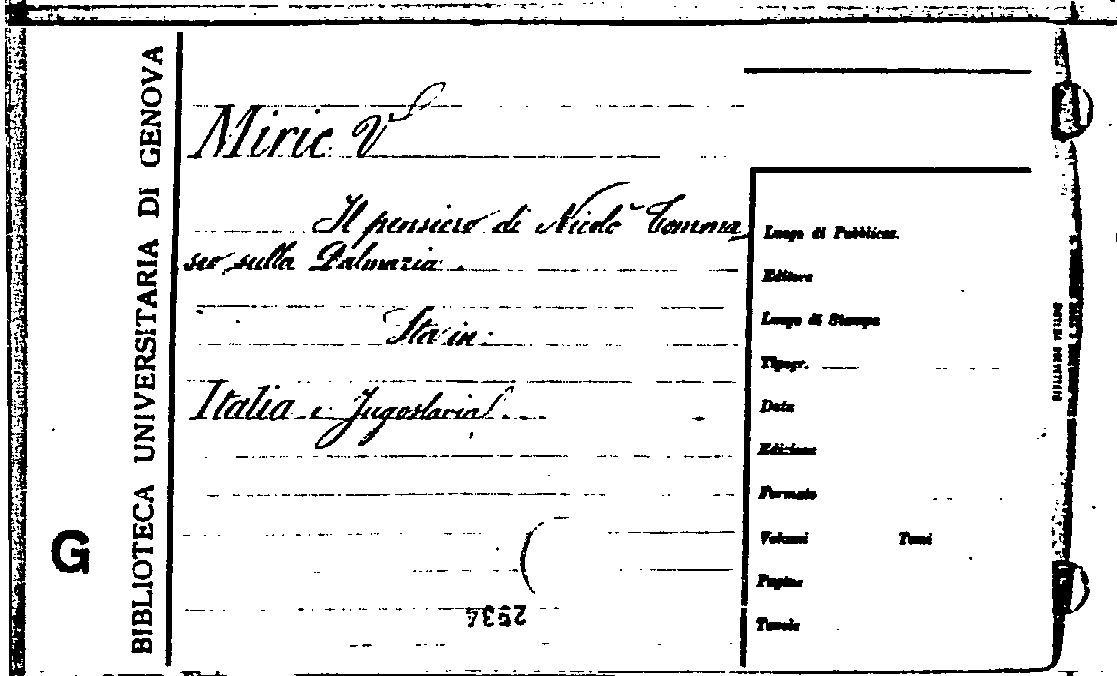 BIBLIOTECA UNIVERSITARIA DI GENOVA
G
Miric V
Il pensiero di Nicolò Tomma
seo sulla Dalmazia.
Sta in:
Italia e Jugoslavia
2934
Luogo di Pubblicaz.
Editore
Luogo di Stampa
Tipogr.
Data
Edizione
Formato
Volumi Tomi
Pagine
Tavole